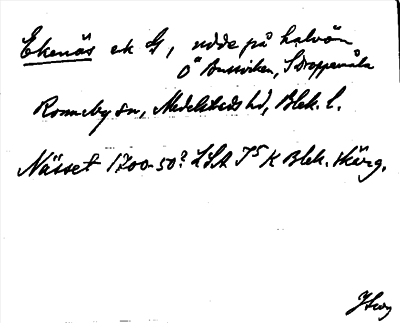 Ekenäs ek G, udde på halvön
Ö Bussviken, S Droppemåla
Ronneby sn, Medelstads hd, Blek. l.
Nässet 1700-50? LSA J5 K Blek. skärg.